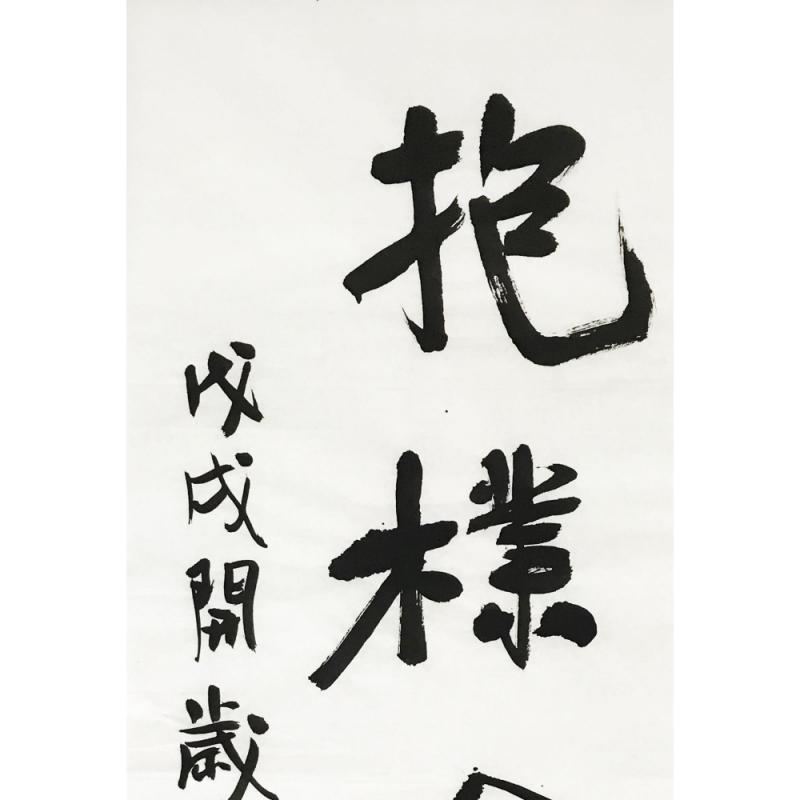 抱樸
戊戌開歲